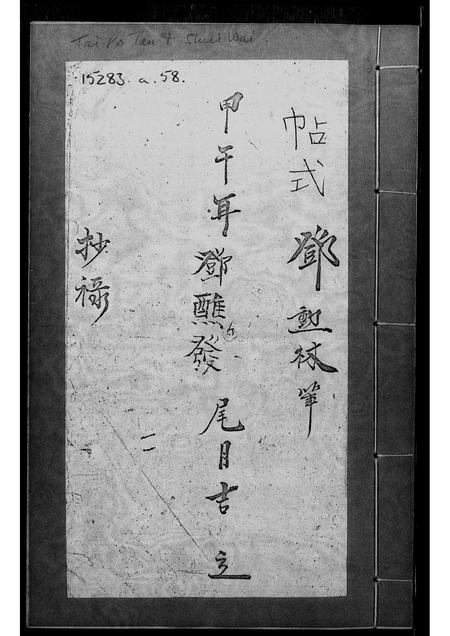 Tai Po Tau & Shui Wai
15283.a.58.
帖式 鄧勳林筆
甲午年 鄧醮發 尾月吉立
抄祿
二